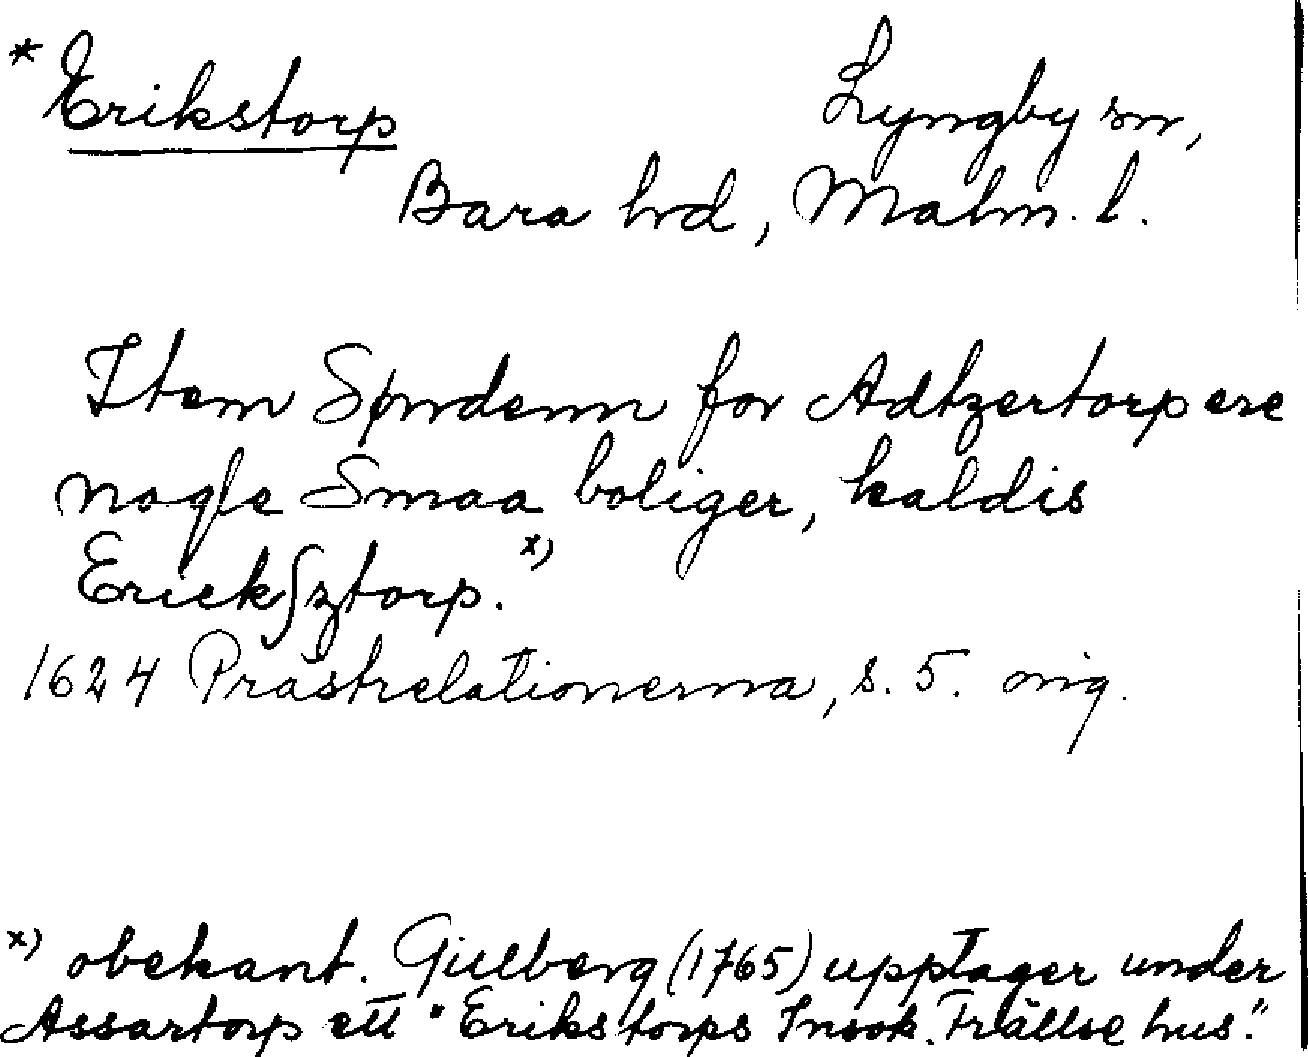 * Erikstorp Lyngby sn,
Bara hd, Malm. l.
Item Synndenn for Adtzertorp ere
nogle Smaa boliger, kaldis
Erickſztorp. x)
1624 Prästrelationerna, s. 5. orig.
x) obekant. Gillberg (1765) upptager under
Assartorp ett "Erikstorps Insok. Frällse hus."